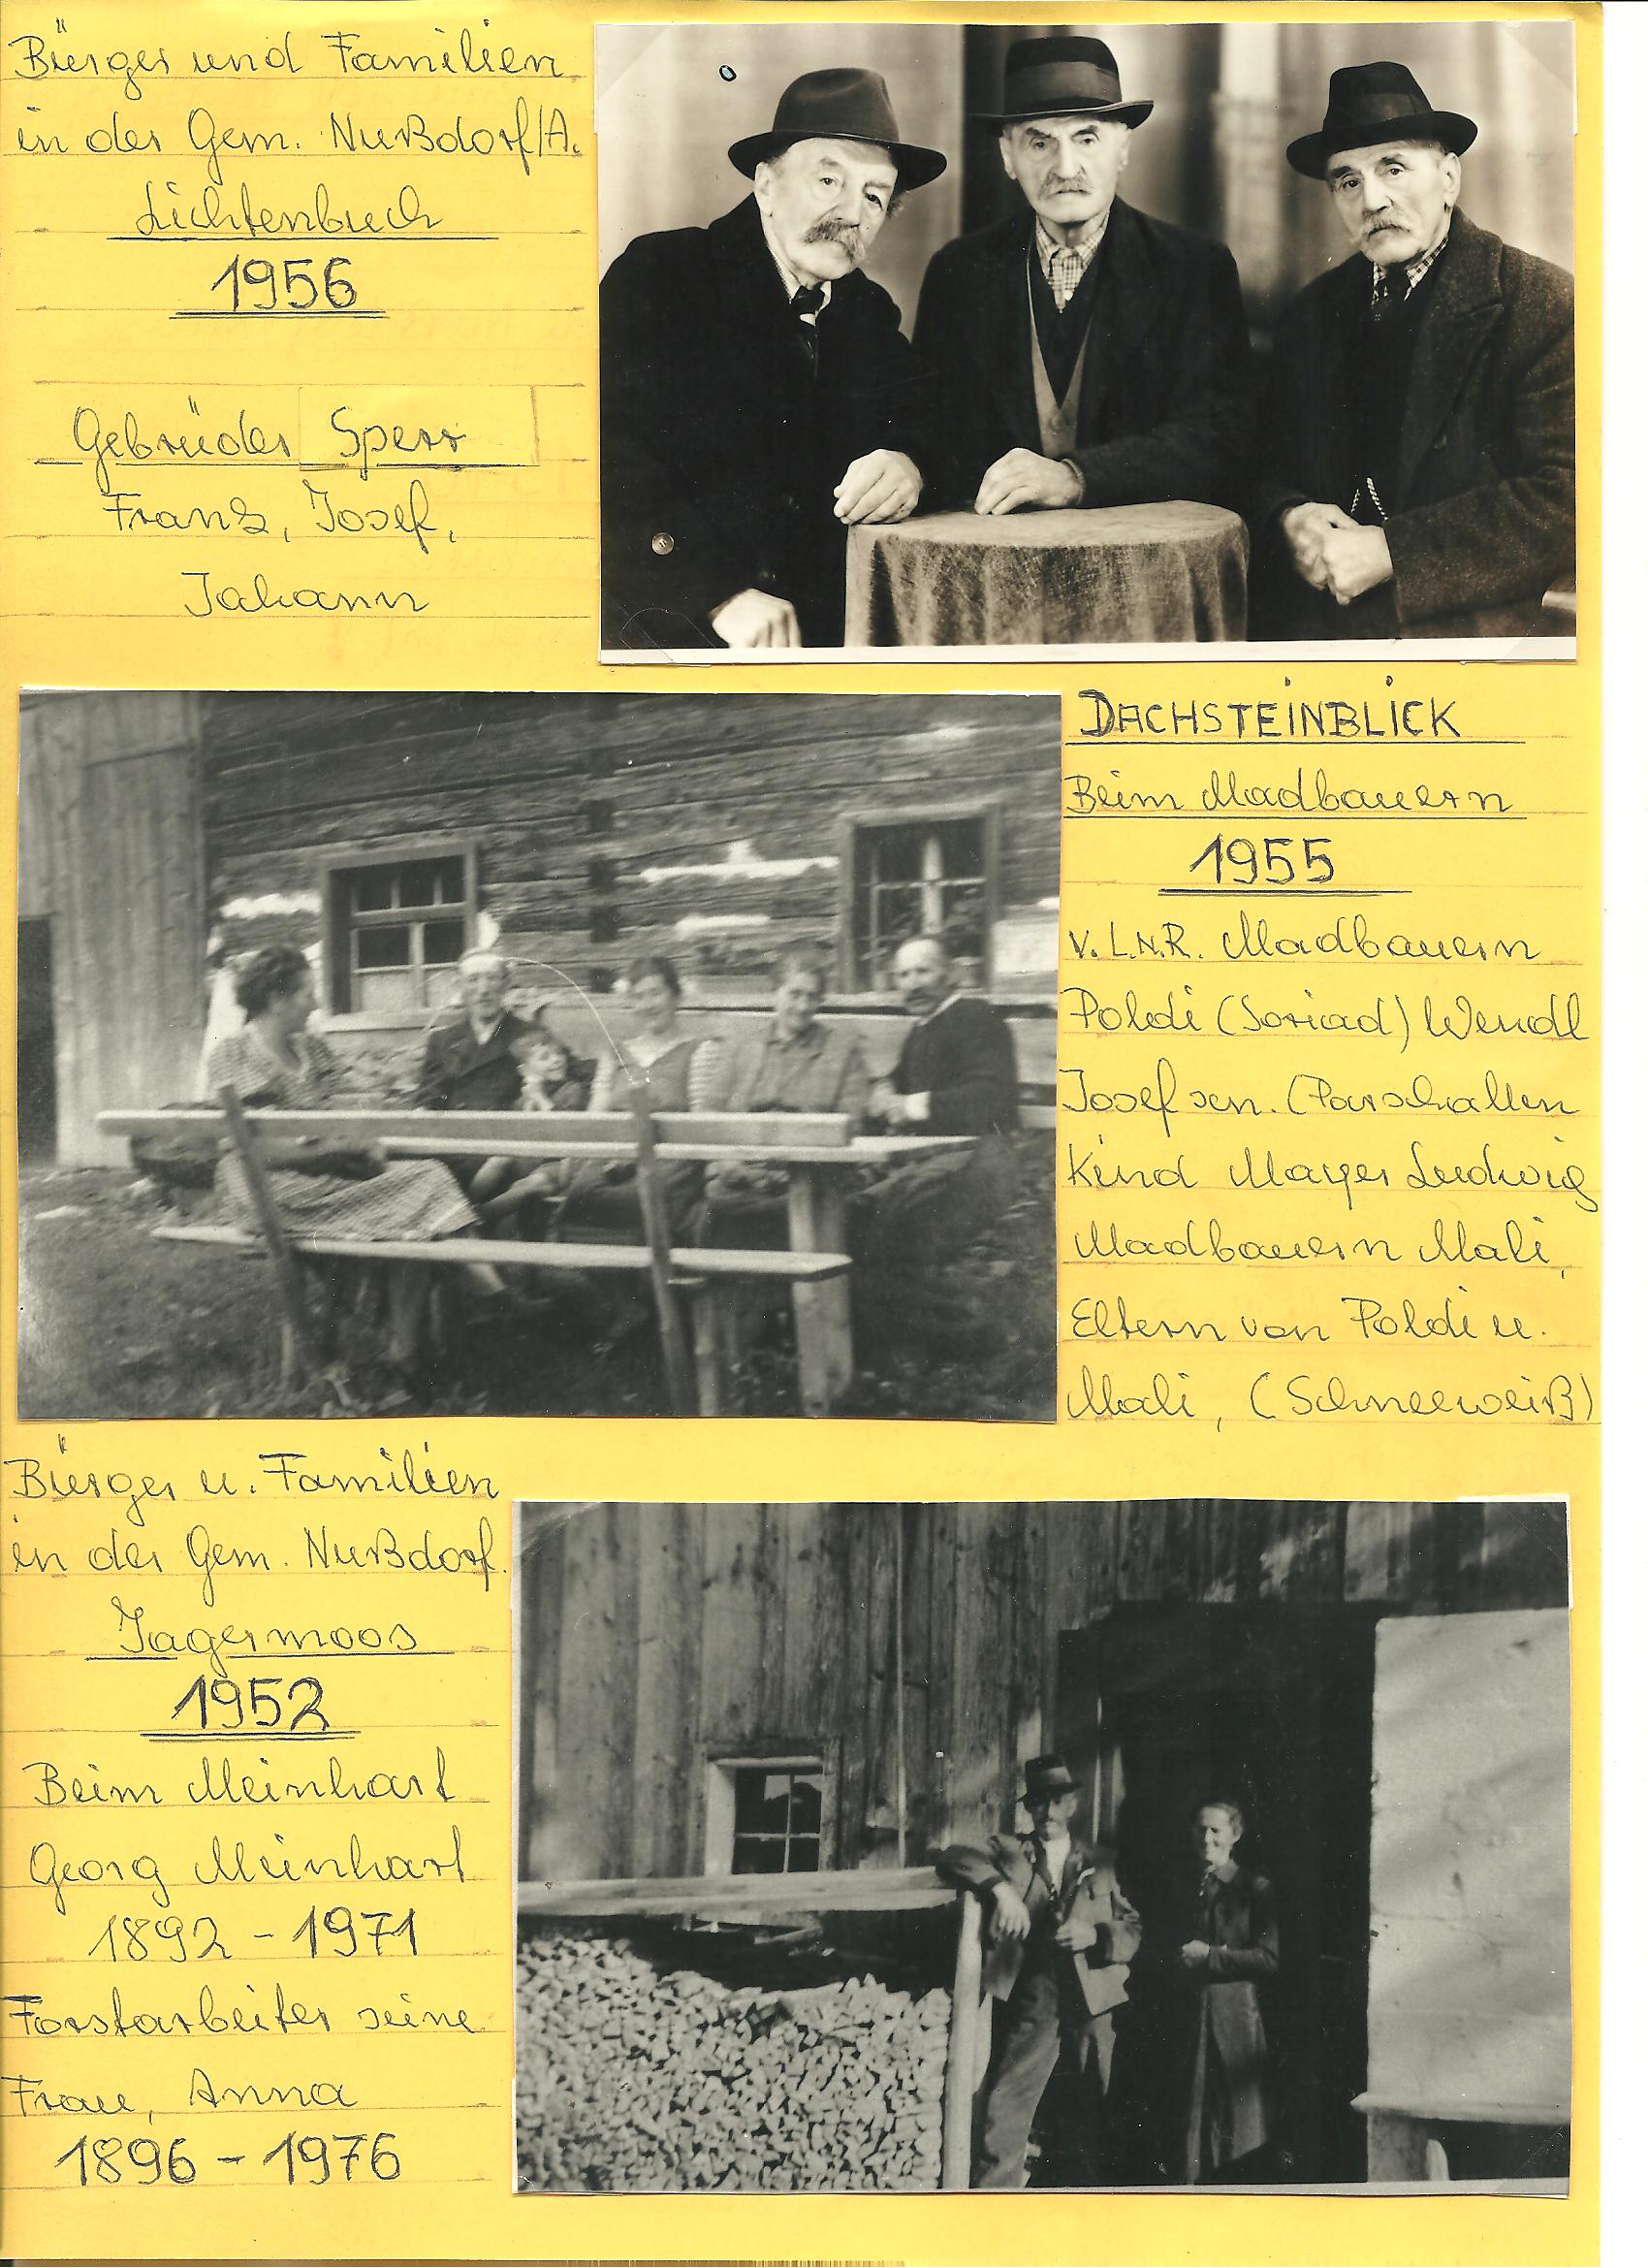 Bürger und Familien
in der Gem. Nußdorf/A.
Lichtenbuch
1956
Gebrüder Sperr
Franz, Josef,
Johann
DACHSTEINBLICK
Beim Madbauern
1955
V.L.N.R. Madbauern
Poldi (Soriad) Wendl
Josef sen. (Parschallen
Kind Mayer Ludwig
Madbauern Mali,
Eltern von Poldi u.
Mali, (Schneeweiß)
Bürger u. Familien
in der Gem. Nußdorf.
Jagermoos
1952
Beim Meinhart
Georg Meinhart
1892 - 1971
Forstarbeiter seine
Frau, Anna
1896 - 1976